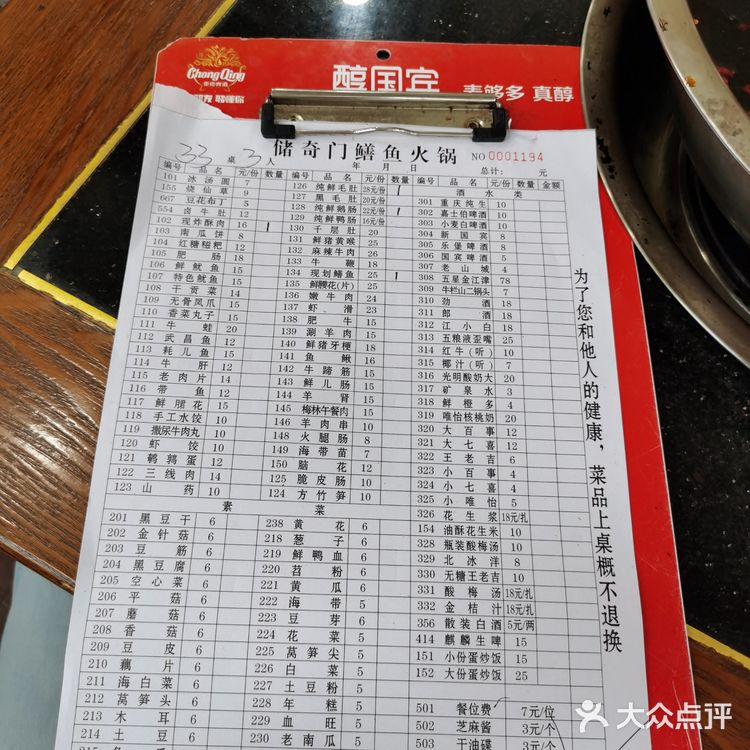 Chong Qing
重庆啤酒
够懂你
醇国宾
麦够多 真醇
储奇门鳝鱼火锅
NO 0001194
33 桌 3 人 年 月 日 总计: 元
编号 品名 元/份 数量 编号 品名 元/份 数量 编号 品名 元/份 数量 金额
101 冰汤圆 7
155 烧仙草 9
667 豆花布丁 5
554 卤牛肚
102 现炸酥肉 1
103 南瓜饼 8
104 红糖糍粑 12
105 肥肠 18
106 鲜鱿鱼 15
107 特色鱿鱼 15
108 干贡菜 14
109 无骨凤爪 15
110 香菜丸子 15
111 牛蛙 20
112 武昌鱼 15
113 耗儿鱼 15
114 牛肝 12
115 老肉片 14
116 带鱼 12
117 鲜腊花 15
118 手工水饺 10
119 撒尿牛肉丸 10
120 虾饺 10
121 鹌鹑蛋 12
122 三线肉 14
123 山药 10
126 纯鲜毛肚 28元/份 1
127 黑毛肚 20元/份
128 纯鲜鹅肠 22元/份 1
129 纯鲜鸭肠 16元/份
130 千层肚 20
131 鲜猪黄喉 25
132 麻辣牛肉 26
133 牛鞭 18
134 现划鳝鱼 25 1
135 鲜腰花(片) 25
136 嫩牛肉 24
137 虾滑 23
138 肥牛 15
139 涮羊肉 15
140 鲜猪牙梗 18
141 鱼鳅 16
142 牛蹄筋 15
143 鲜儿肠 15
144 羊肾 15
145 梅林午餐肉 10
146 羊肉串 10
148 火腿肠 8
149 海带苗 7
150 脑花 12
125 脆皮肠 10
124 方竹笋 10
酒水类
301 重庆纯生 10
302 嘉士伯啤酒 10
303 小麦白啤酒 10
304 新国宾 8
305 乐堡啤酒 8
306 国宾啤酒 5
307 老山城 4
308 五星金江津 78
309 牛栏山二锅头 7
310 劲酒 18
311 郎酒 18
312 江小白 18
313 五粮液歪嘴 25
314 红牛(听) 10
315 椰汁(听) 10
316 光明酸奶大 20
317 矿泉水 3
318 鲜橙多 4
319 唯怡核桃奶 20
320 大百事 12
321 大七喜 12
322 王老吉 6
323 小百事 4
324 小七喜 4
325 小唯怡 5
326 花生浆 18元/扎
154 油酥花生米 10
328 瓶装酸梅汤 10
329 北冰洋 8
330 无糖王老吉 10
331 酸梅汤 18元/扎
332 金桔汁 18元/扎
356 散装白酒 5元/两
414 麒麟生啤 15
151 小份蛋炒饭 15
152 大份蛋炒饭 25
素菜
201 黑豆干 6
202 金针菇 6
203 豆筋 6
204 黑豆腐 6
205 空心菜 6
206 平菇 6
207 蘑菇 6
208 香菇 6
209 豆皮 6
210 藕片 6
211 海白菜 6
212 莴笋头 6
213 木耳 6
214 土豆 6
238 黄花 6
218 葱子 6
219 鲜鸭血 6
220 苕粉 6
221 黄瓜 6
222 海带 5
223 豆芽 6
224 花菜 5
225 莴笋尖 5
226 白菜 5
227 土豆粉 5
228 年糕 5
229 血旺 5
230 老南瓜 5
501 餐位费 7元/位
502 芝麻酱 3元/个
503 干油碟 3元/个
为了您和他人的健康,菜品上桌概不退换
大众点评